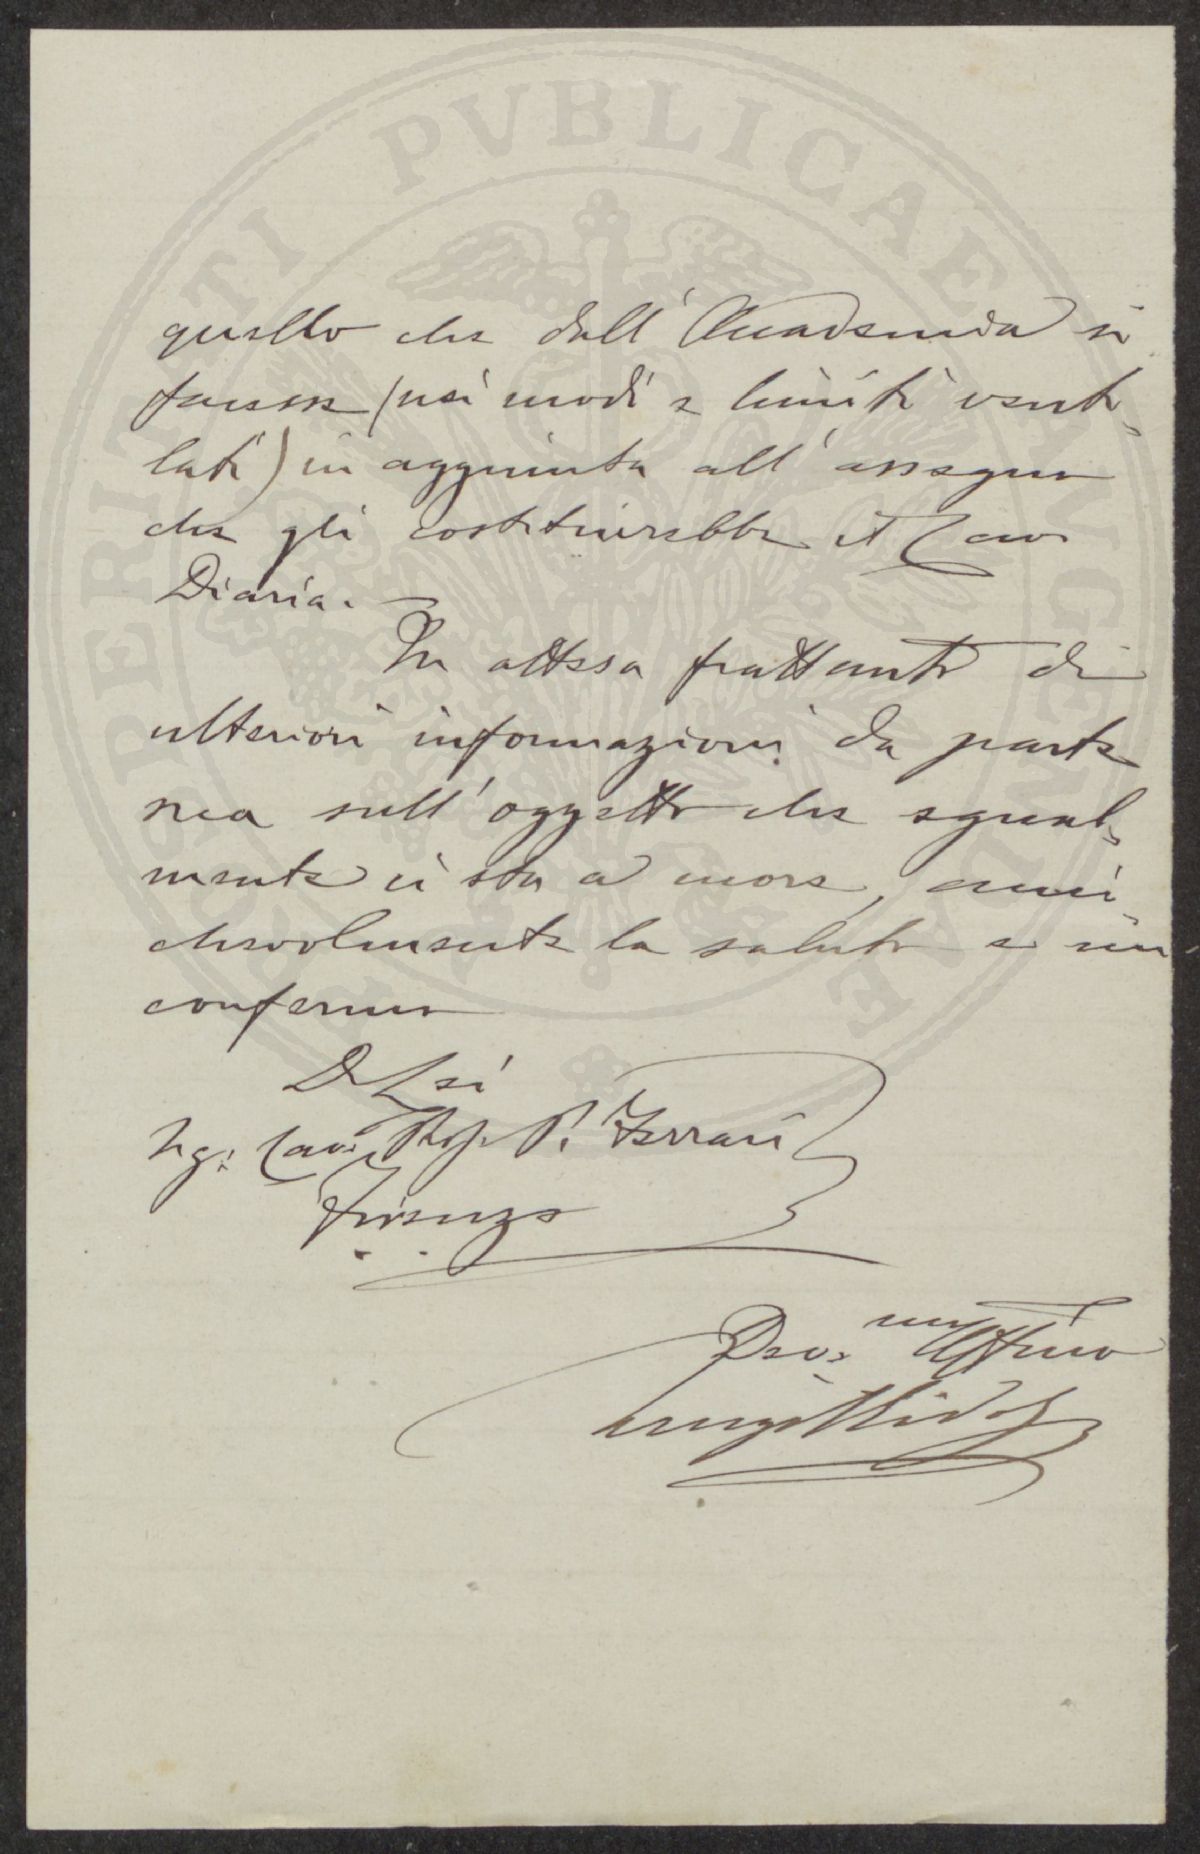 quello che dall'Accademia si
facesse (nei modi e limiti venti-
lati) in aggiunta all'assegno
che gli costituirebbe il Cav.
Diaria.
In attesa frattanto di
ulteriori informazioni da parte
sua sull'oggetto che egual-
mente ci sta a cuore, ami-
chevolmente la saluto e mi
confermo
Di Lei
Sig: Cav: Prof. P. Ferrari
Firenze
Dev: mo Aff.mo